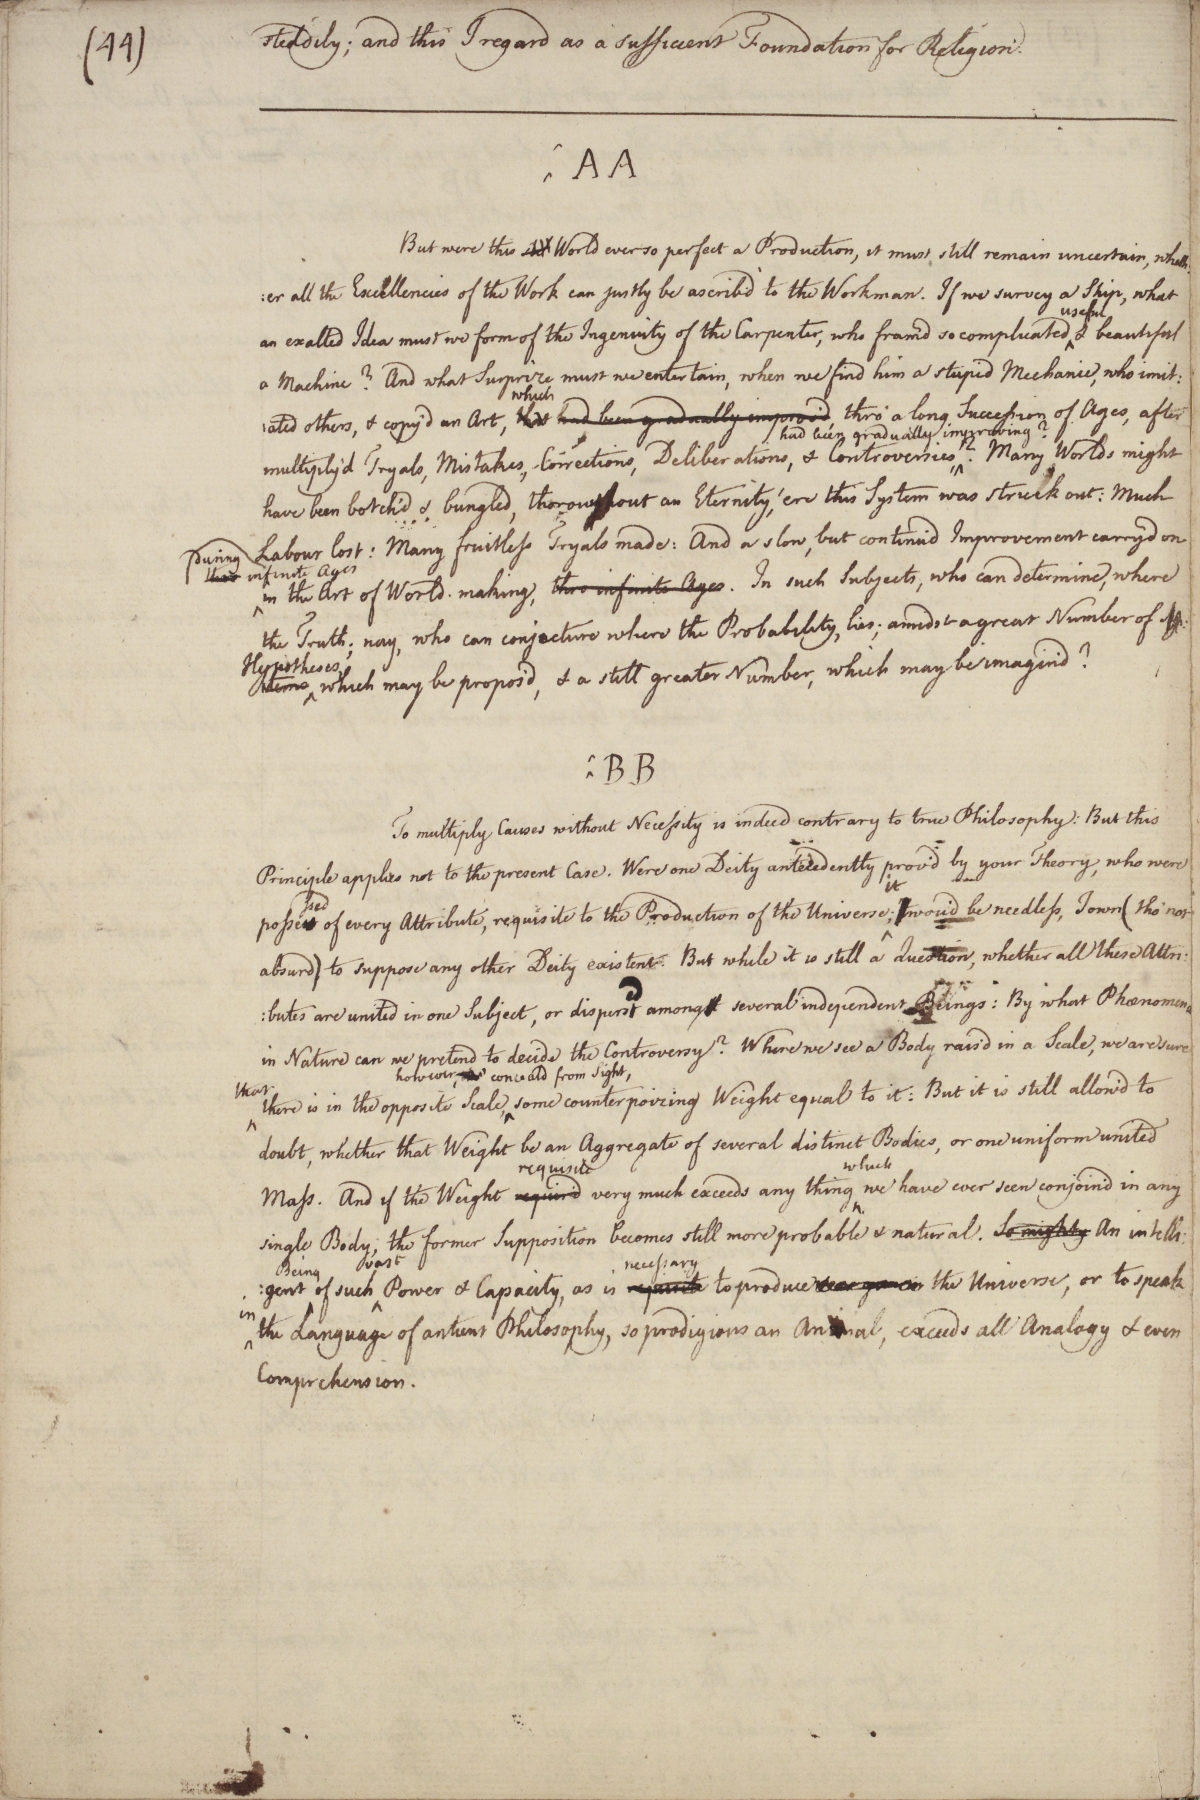 (44)
steddily; and this I regard as a sufficient Foundation for Religion.
AA
But were this World ever so perfect a Production, it must still remain uncertain, wheth:
:er all the Excellencies of the Work can justly be ascrib'd to the Workman. If we survey a Ship, what
useful
an exalted Idea must we form of the Ingenuity of the Carpenter, who fram'd so complicated ^ & beautiful
a Machine? And what Surprize must we entertain, when we find him a stupid Mechanic, who imit:
which
:ated others, & copy'd an Art, that had been gradually improv'd thro' a long Succession of Ages, after
had been gradually improving?
multiply'd Tryals, Mistakes, Corrections, Deliberations, & Controversies ^? Many Worlds might
have been botch'd & bungled, thorowout an Eternity, 'ere this System was struck out: Much
Labour lost: Many fruitless Tryals made: And a slow, but continu'd Improvement carry'd on
During
thro' infinite Ages
^ in the Art of World-making, thro infinite Ages. In such Subjects, who can determine, where
the Truth; nay, who can conjecture where the Probability, lies; amidst a great Number of
Hypotheses
^ which may be propos'd, & a still greater Number, which may be imagin'd?
BB
To multiply Causes without Necessity is indeed contrary to true Philosophy: But this
Principle applies not to the present Case. Were one Deity antecedently prov'd by your Theory, who were
ssed
it
possest of every Attribute, requisite to the Production of the Universe; ^ wou'd be needless, I own (tho' not
absurd) to suppose any other Deity existent. But while it is still a Question, whether all these Attri:
:butes are united in one Subject, or disperst among several independent Beings: By what Phænomena
in Nature can we pretend to decide the Controversy? Where we see a Body rais'd in a Scale, we are sure
that
however, conceal'd from Sight,
^ there is in the opposite Scale, ^ some counterpoizing Weight equal to it: But it is still allow'd to
doubt, whether that Weight be an Aggregate of several distinct Bodies, or one uniform united
requisite
which
Mass. And if the Weight requir'd very much exceeds any thing ^ we have ever seen conjoin'd in any
single Body, the former Supposition becomes still more probable & natural. So mighty An intelli:
Being
vast
necessary
:gent ^ of such ^ Power & Capacity, as is requisite to produce the Universe, or to speak
in
^ the Language of antient Philosophy, so prodigious an Animal, exceeds all Analogy & even
Comprehension.